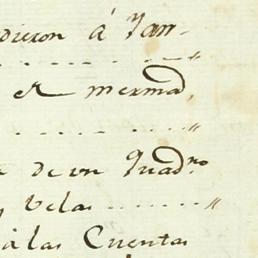 dieron á Jan-
. . . . . . . . . "
et mermad,
. . . . . . "
de un Quadr.no
velas . . . . . . "
á las Cuentas